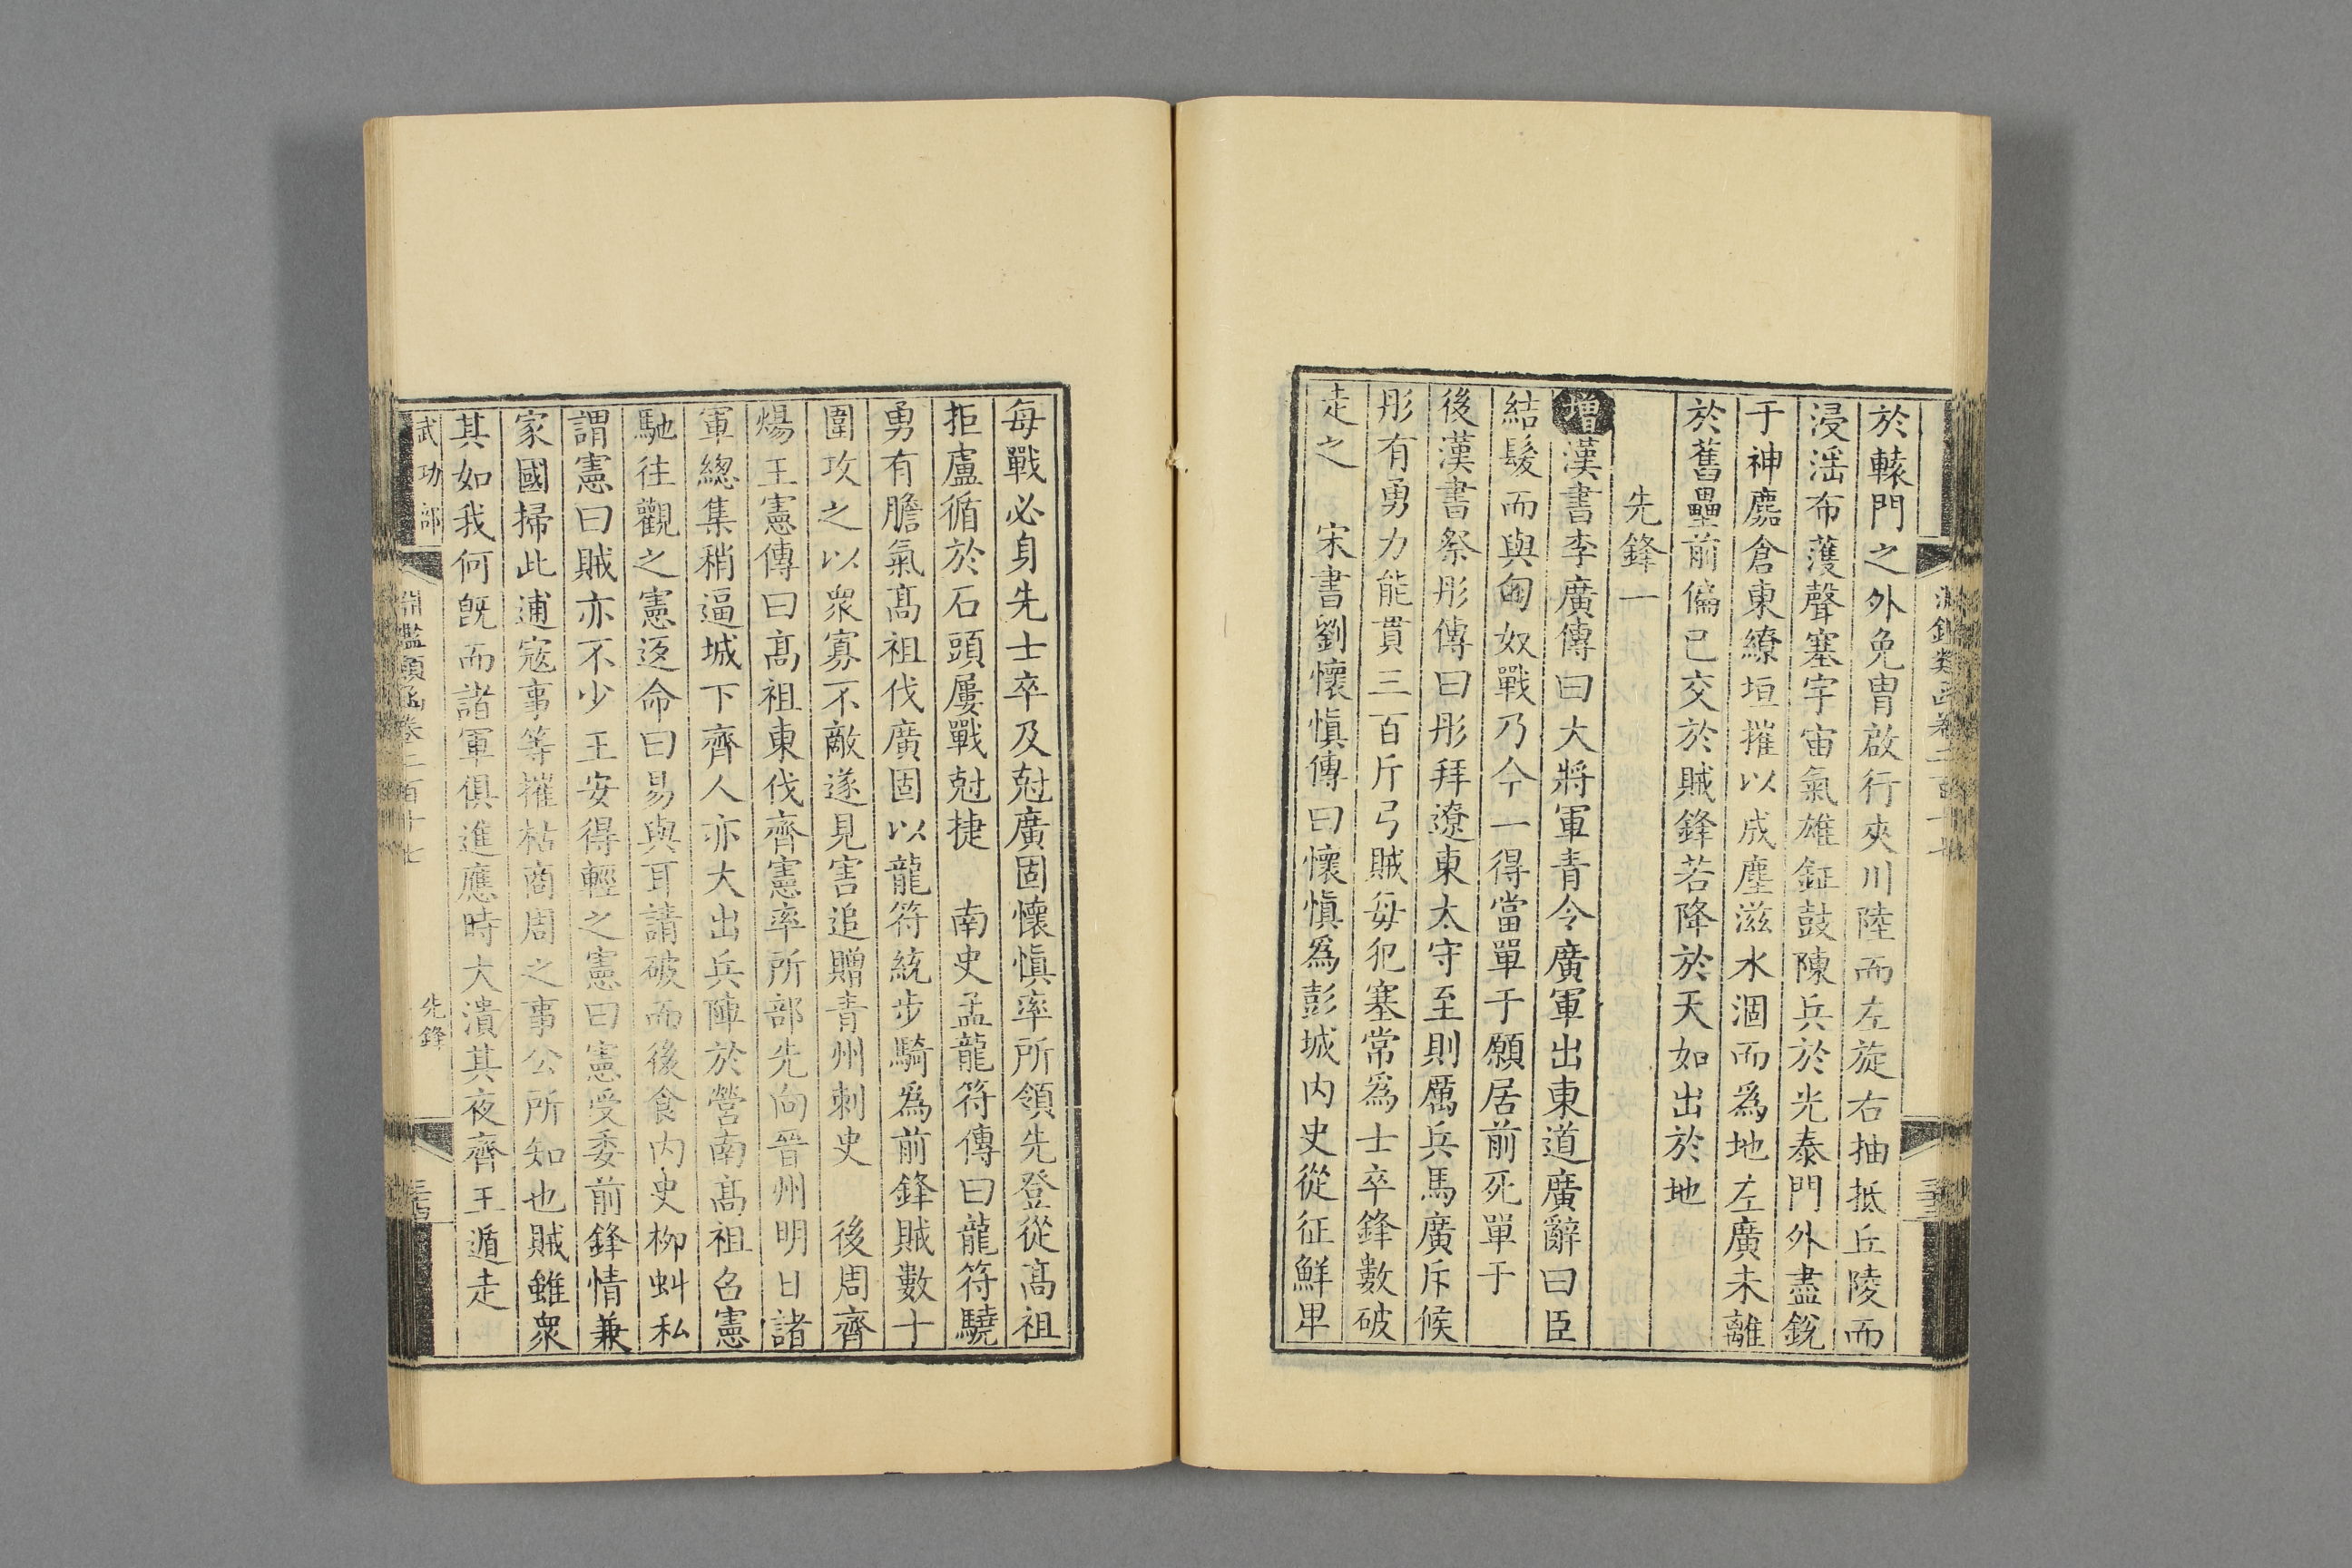 於轅門之外免冑啟行夾川陸而左旋右抽抵丘陵而
浸淫布濩聲塞宇宙氣雄鉦鼓陳兵於光泰門外盡銳
于神麚倉東繚垣摧以成塵滋水涸而為地左廣未離
於舊壘前偏已交於賊鋒若降於天如出於地
先鋒一
增漢書李廣傳曰大將軍青令廣軍出東道廣辭曰臣
結髮而與匈奴戰乃今一得當單于願居前死單于
後漢書祭彤傳曰彤拜遼東太守至則厲兵馬廣斥候
彤有勇力能貫三百斤弓賊每犯塞常爲士卒鋒數破
走之　宋書劉懷慎傳曰懷慎爲彭城内史從征鮮卑
每戰必身先士卒及尅廣固懷慎率所領先登從髙祖
拒盧循於石頭屢戰尅捷　南史孟龍符傳曰龍符驍
勇有膽氣髙祖伐廣固以龍符統步騎爲前鋒賊數十
圍攻之以衆寡不敵遂見害追贈青州刺史　後周齊
煬王憲傳曰髙祖東伐齊憲率所部先向晉州明日諸
軍總集稍逼城下齊人亦大出兵陣於營南髙祖召憲
馳往觀之憲返命曰易與耳請破而後食内史柳虯私
謂憲曰賊亦不少王安得輕之憲曰憲受委前鋒情兼
家國掃此逋寇事等摧枯商周之事公所知也賊雖衆
其如我何旣而諸軍俱進應時大潰其夜齊王遁走
武功部
淵鑑類函卷二百十七
先鋒